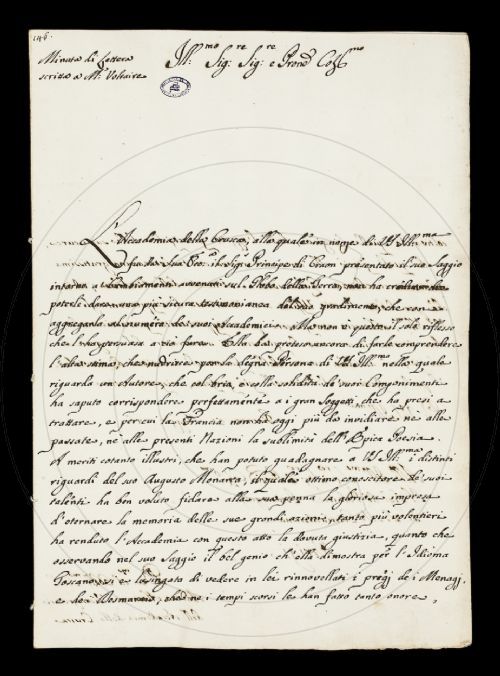 Minuta di Lettera
scritta a M.r Voltaire
Ill.mo Sig.re Sig.re e Pron.e Col.mo
L'Accademia della Crusca, alla quale in nome di VS Ill.ma
fu da Sua Ecc.a il Sig.r Principe di Craon presentato il suo Saggio
intorno a Cambiamenti avvenuti sul Globo della Terra, non ha creduto di
poterle dare una più sicura testimonianza del suo gradimento, che con
aggregarla al numero de suoi Accademici. Ma non è questo il solo riflesso
che l'ha persuasa a ciò fare. Ella ha preteso ancora di farle comprendere
l'alta stima, che nudrisce per la degna Persona di VS Ill.ma nella quale
riguarda un Autore, che col bria, e colla solidità de' suoi Componimenti
ha saputo corrispondere perfettamente a i gran Soggetti, che ha presi a
trattare, e per cui la Francia non ha oggi più da invidiare ne alle
passate, ne alle presenti Nazioni la sublimità dell'Epica Poesia.
A meriti cotanto illustri, che han potuto guadagnare a VS Ill.ma i distinti
riguardi del suo Augusto Monarca, il quale ottimo conoscitore de' suoi
talenti ha ben voluto fidare alla sua penna la gloriosa impresa
d'eternare la memoria delle sue grandi azioni, tanto più volentieri
ha renduto l'Accademia con questo atto la dovuta giustizia, quanto che
osservando nel suo Saggio il bel genio ch'ella dimostra per l'Idioma
Toscano, si è lusingata di vedere in lei rinnovellati i pregj de i Menagj,
e de Desmarais, che ne i tempi scorsi le han fatto tanto onore,